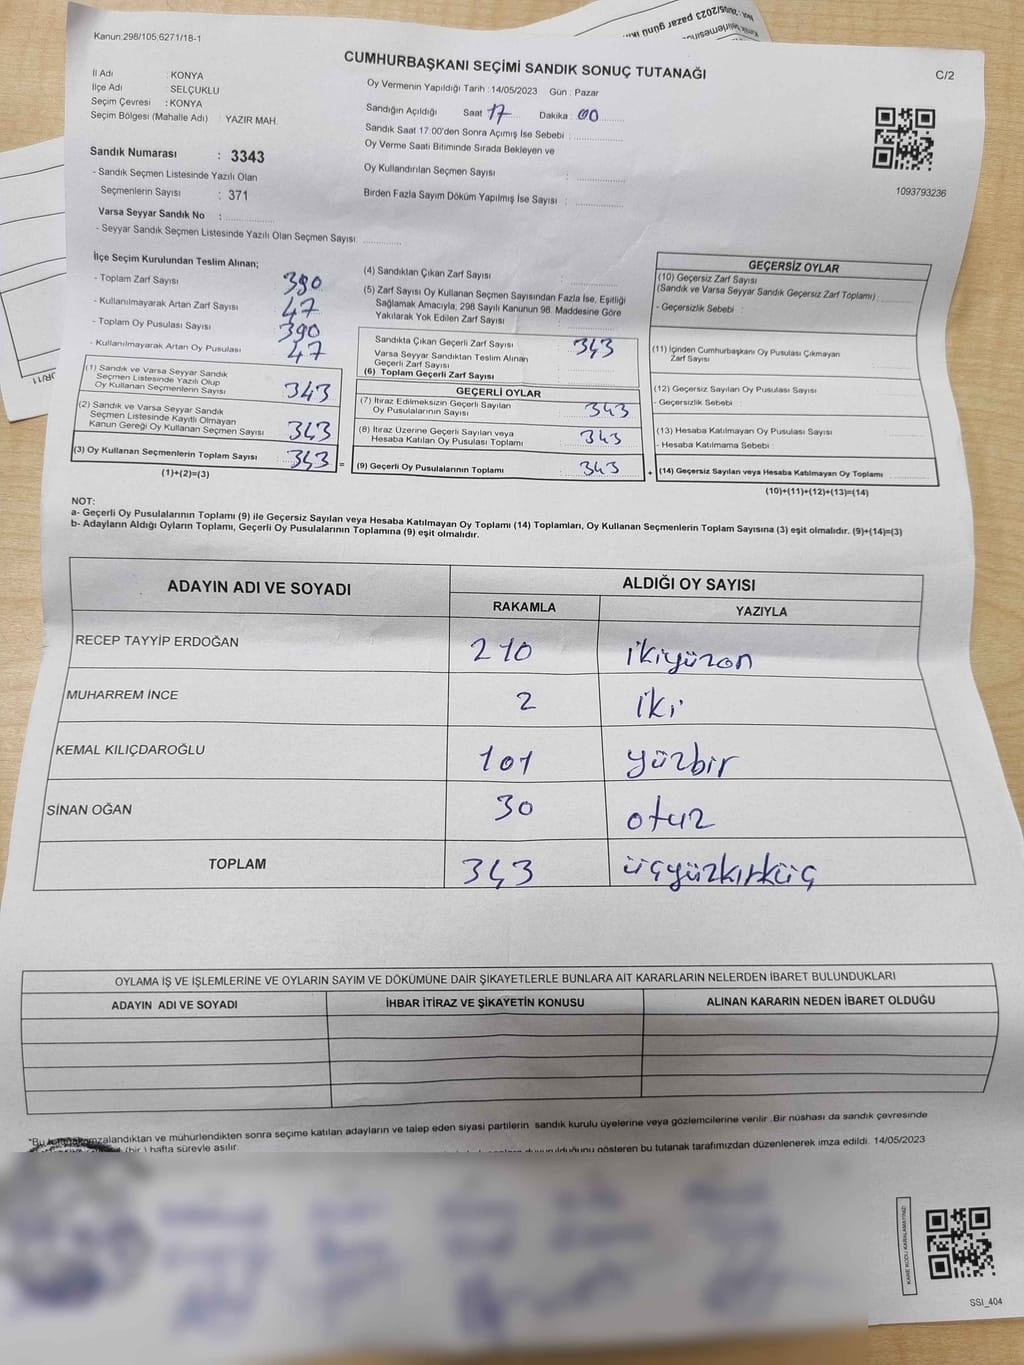 Kanun:298/105,6271/18-1
CUMHURBAŞKANI SEÇİMİ SANDIK SONUÇ TUTANAĞI
C/2
İl Adı : KONYA
İlçe Adı : SELÇUKLU
Seçim Çevresi : KONYA
Seçim Bölgesi (Mahalle Adı) : YAZIR MAH.
Sandık Numarası : 3343
- Sandık Seçmen Listesinde Yazılı Olan
Seçmenlerin Sayısı : 371
Varsa Seyyar Sandık No :
- Seyyar Sandık Seçmen Listesinde Yazılı Olan Seçmen Sayısı:
Oy Vermenin Yapıldığı Tarih :14/05/2023 Gün : Pazar
Sandığın Açıldığı Saat 17 Dakika : 00
Sandık Saat 17:00'den Sonra Açımış İse Sebebi :
Oy Verme Saati Bitiminde Sırada Bekleyen ve
Oy Kullandırılan Seçmen Sayısı :
Birden Fazla Sayım Döküm Yapılmış İse Sayısı :
1093793236
İlçe Seçim Kurulundan Teslim Alınan;
- Toplam Zarf Sayısı 390
- Kullanılmayarak Artan Zarf Sayısı 47
- Toplam Oy Pusulası Sayısı 390
- Kullanılmayarak Artan Oy Pusulası 47
(1) Sandık ve Varsa Seyyar Sandık
Seçmen Listesinde Yazılı Olup
Oy Kullanan Seçmenlerin Sayısı 343
(2) Sandık ve Varsa Seyyar Sandık
Seçmen Listesinde Kayıtlı Olmayan
Kanun Gereği Oy Kullanan Seçmen Sayısı 343
(3) Oy Kullanan Seçmenlerin Toplam Sayısı 343
(1)+(2)=(3)
(4) Sandıktan Çıkan Zarf Sayısı
(5) Zarf Sayısı Oy Kullanan Seçmen Sayısından Fazla İse, Eşitliği
Sağlamak Amacıyla, 298 Sayılı Kanunun 98. Maddesine Göre
Yakılarak Yok Edilen Zarf Sayısı :
Sandıkta Çıkan Geçerli Zarf Sayısı 343
Varsa Seyyar Sandıktan Teslim Alınan
Geçerli Zarf Sayısı
(6) Toplam Geçerli Zarf Sayısı
GEÇERLİ OYLAR
(7) İtiraz Edilmeksizin Geçerli Sayılan
Oy Pusulalarının Sayısı 343
(8) İtiraz Üzerine Geçerli Sayılan veya
Hesaba Katılan Oy Pusulası Toplamı 343
= (9) Geçerli Oy Pusulalarının Toplamı 343 +
GEÇERSİZ OYLAR
(10) Geçersiz Zarf Sayısı
(Sandık ve Varsa Seyyar Sandık Geçersiz Zarf Toplamı)
- Geçersizlik Sebebi :
(11) İçinden Cumhurbaşkanı Oy Pusulası Çıkmayan
Zarf Sayısı
(12) Geçersiz Sayılan Oy Pusulası Sayısı
- Geçersizlik Sebebi :
(13) Hesaba Katılmayan Oy Pusulası Sayısı
- Hesaba Katılmama Sebebi :
(14) Geçersiz Sayılan veya Hesaba Katılmayan Oy Toplamı
(10)+(11)+(12)+(13)=(14)
NOT:
a- Geçerli Oy Pusulalarının Toplamı (9) ile Geçersiz Sayılan veya Hesaba Katılmayan Oy Toplamı (14) Toplamları, Oy Kullanan Seçmenlerin Toplam Sayısına (3) eşit olmalıdır. (9)+(14)=(3)
b- Adayların Aldığı Oyların Toplamı, Geçerli Oy Pusulalarının Toplamına (9) eşit olmalıdır.
ADAYIN ADI VE SOYADI
ALDIĞI OY SAYISI
RAKAMLA YAZIYLA
RECEP TAYYİP ERDOĞAN 210 ikiyüzon
MUHARREM İNCE 2 iki
KEMAL KILIÇDAROĞLU 101 yüzbir
SİNAN OĞAN 30 otuz
TOPLAM 343 üçyüzkırküç
OYLAMA İŞ VE İŞLEMLERİNE VE OYLARIN SAYIM VE DÖKÜMÜNE DAİR ŞİKAYETLERLE BUNLARA AİT KARARLARIN NELERDEN İBARET BULUNDUKLARI
ADAYIN ADI VE SOYADI İHBAR İTİRAZ VE ŞİKAYETİN KONUSU ALINAN KARARIN NEDEN İBARET OLDUĞU
"Bu imzalandıktan ve mühürlendikten sonra seçime katılan adayların ve talep eden siyasi partilerin sandık kurulu üyelerine veya gözlemcilerine verilir .Bir nüshası da sandık çevresinde
(bir ) hafta süreyle asılır.
duyurulduğunu gösteren bu tutanak tarafımızdan düzenlenerek imza edildi. 14/05/2023
KARE KODU KARALAMAYINIZ!
SSI_404